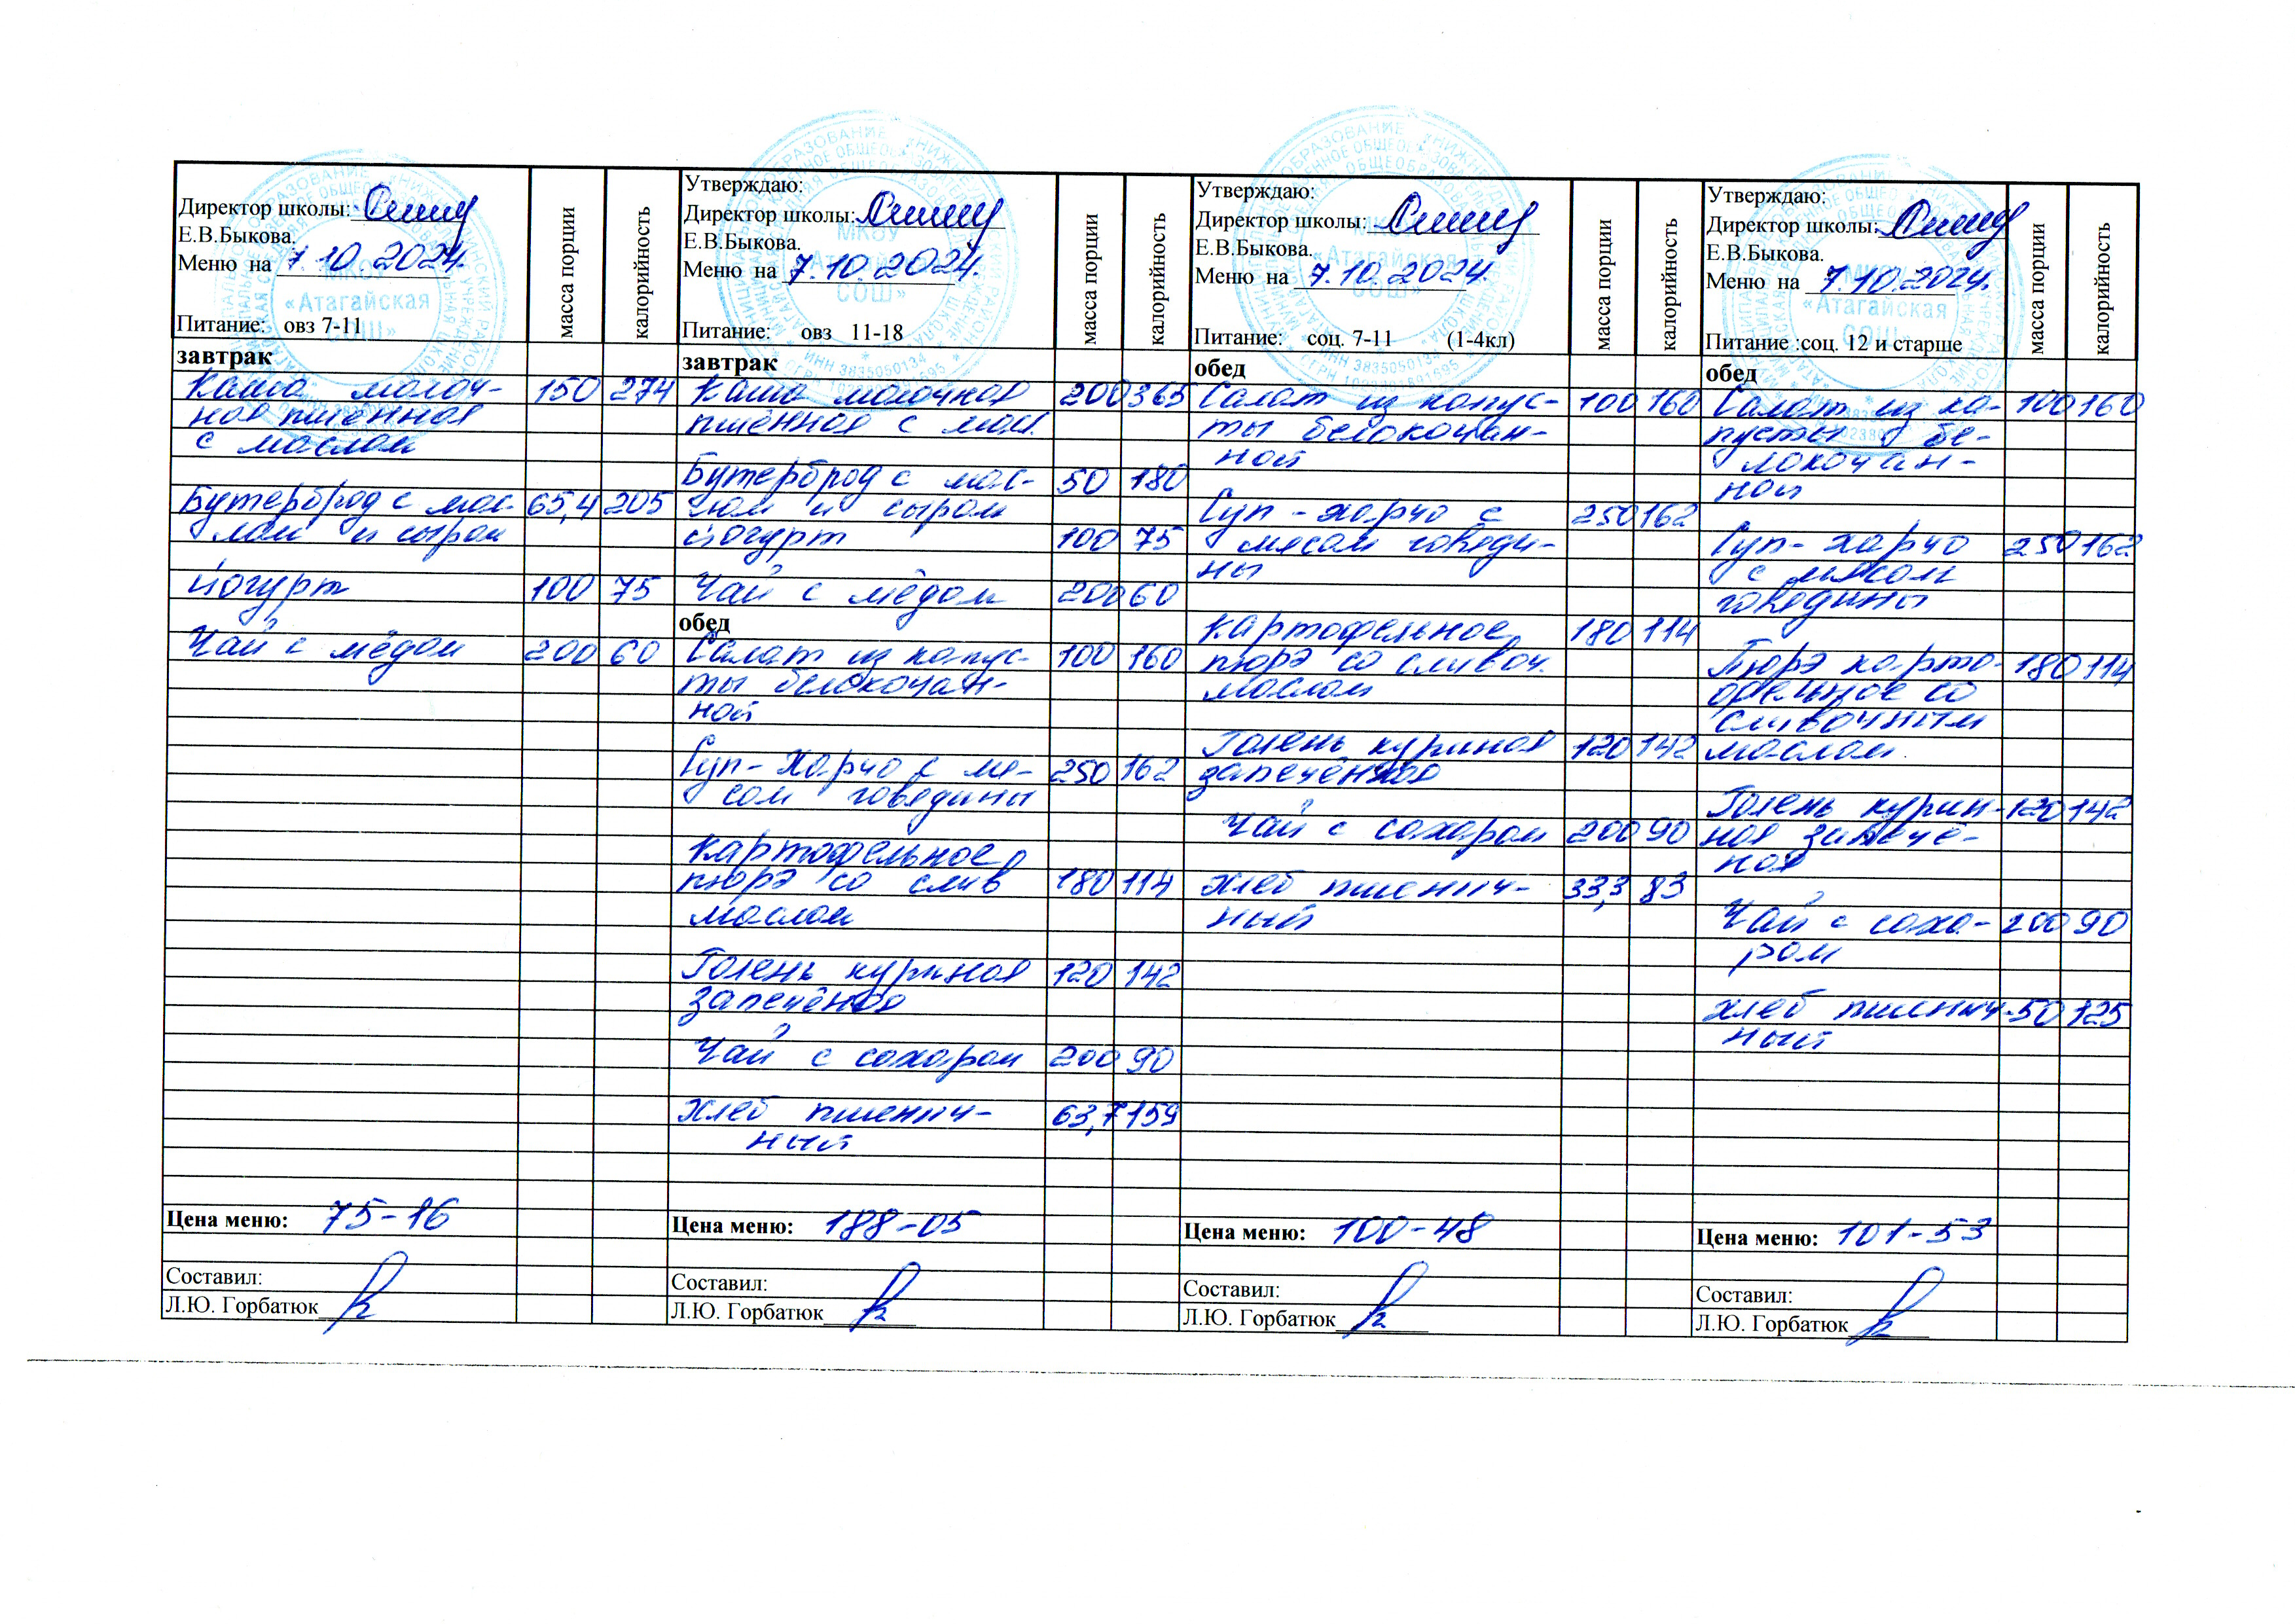 Директор школы:
Е.В.Быкова.
Меню на 7.10.2024.
Питание: овз 7-11
масса порции
калорийность
завтрак
Каша молоч- 150 274
ная пшённая
с маслом
Бутерброд с мас- 65,4 205
лом и сыром
йогурт 100 75
Чай с мёдом 200 60
Цена меню: 75-16
Составил:
Л.Ю. Горбатюк
Утверждаю:
Директор школы:
Е.В.Быкова.
Меню на 7.10.2024.
Питание: овз 11-18
масса порции
калорийность
завтрак
Каша молочная 200 365
пшённая с мас.
Бутерброд с мас- 50 180
лом и сыром
йогурт 100 75
Чай с мёдом 200 60
обед
Салат из капус- 100 160
ты белокочан-
ной
Суп-харчо с мя- 250 162
сом говядины
Картофельное
пюрэ со слив 180 114
маслом
Голень куриная 120 142
запечёная
Чай с сахаром 200 90
хлеб пшенич- 63,7 159
ный
Цена меню: 188-05
Составил:
Л.Ю. Горбатюк
Утверждаю:
Директор школы:
Е.В.Быкова.
Меню на 7.10.2024.
Питание: соц. 7-11 (1-4кл)
масса порции
калорийность
обед
Салат из капус- 100 160
ты белокочан-
ной
Суп-харчо с 250 162
мясом говяди-
ны
Картофельное 180 114
пюрэ со сливоч.
маслом
Голень куриная 120 142
запечённая
Чай с сахаром 200 90
хлеб пшенич- 33,3 83
ный
Цена меню: 100-48
Составил:
Л.Ю. Горбатюк
Утверждаю:
Директор школы:
Е.В.Быкова.
Меню на 7.10.2024.
Питание :соц. 12 и старше
масса порции
калорийность
обед
Салат из ка- 100 160
пусты бе-
локочан-
ной
Суп-харчо 250 162
с мясом
говядины
Пюрэ карто- 180 114
фельное со
сливочным
маслом
Голень курин- 120 142
ная запечё-
ная
Чай с саха- 200 90
ром
хлеб пшенич- 50 125
ный
Цена меню: 101-53
Составил:
Л.Ю. Горбатюк
МКОУ
«Атагайская
СОШ»